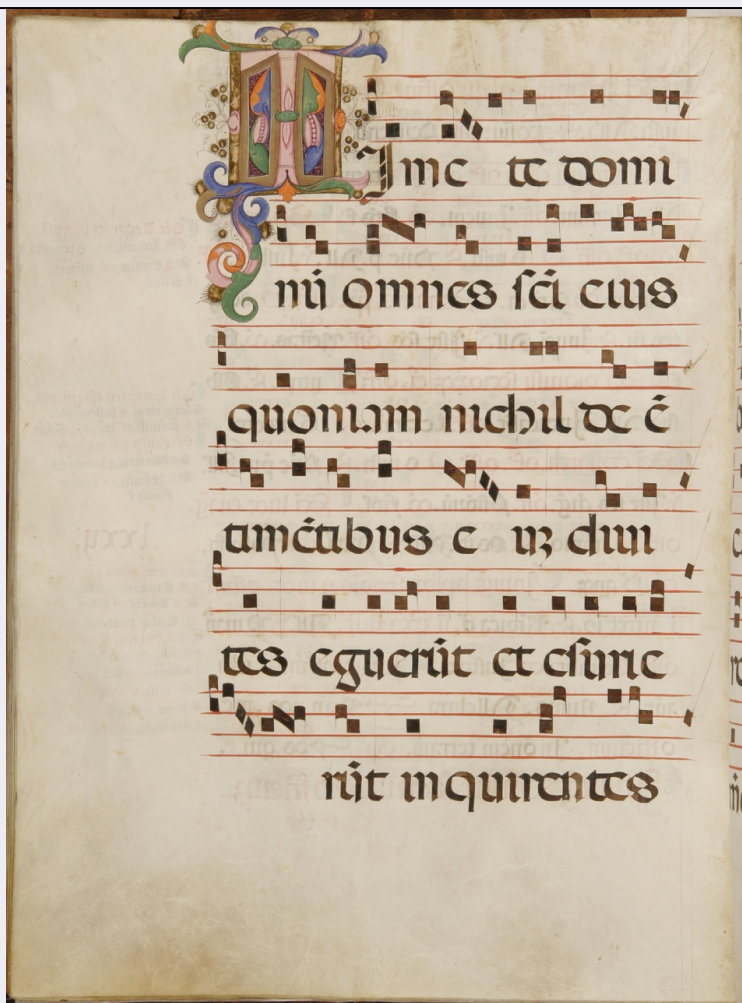 TIme te domi
nū omnes sc̄i eius
quoniam nichil de ē
timētibus e uꝫ diui
tes eguerūt et esurie
rūt inquirentes